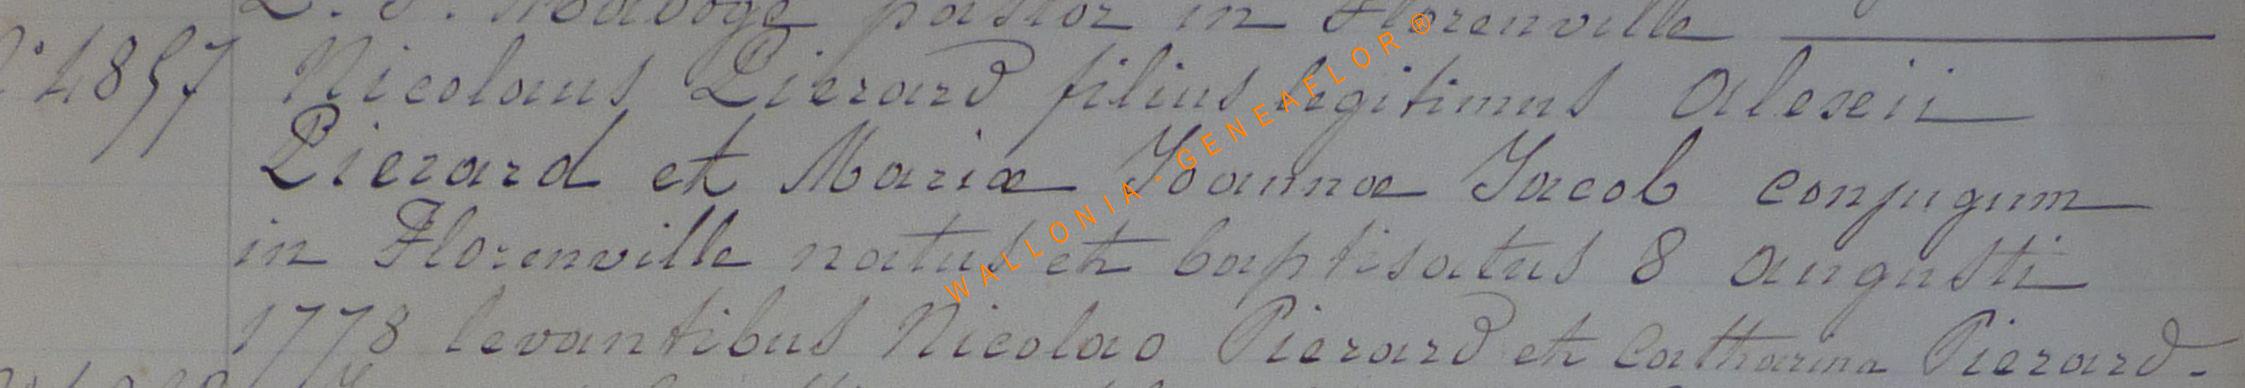 pastor in Florenville
N° 4857 Nicolaus Pierard filius legitimus Alexii
Pierard et Mariæ Joannæ Jacob conjugum
in Florenville natus et baptisatus 8 Augusti
1778 levantibus Nicolao Pierard et Catharina Pierard.
WALLONIA - GENEAFLOR ®